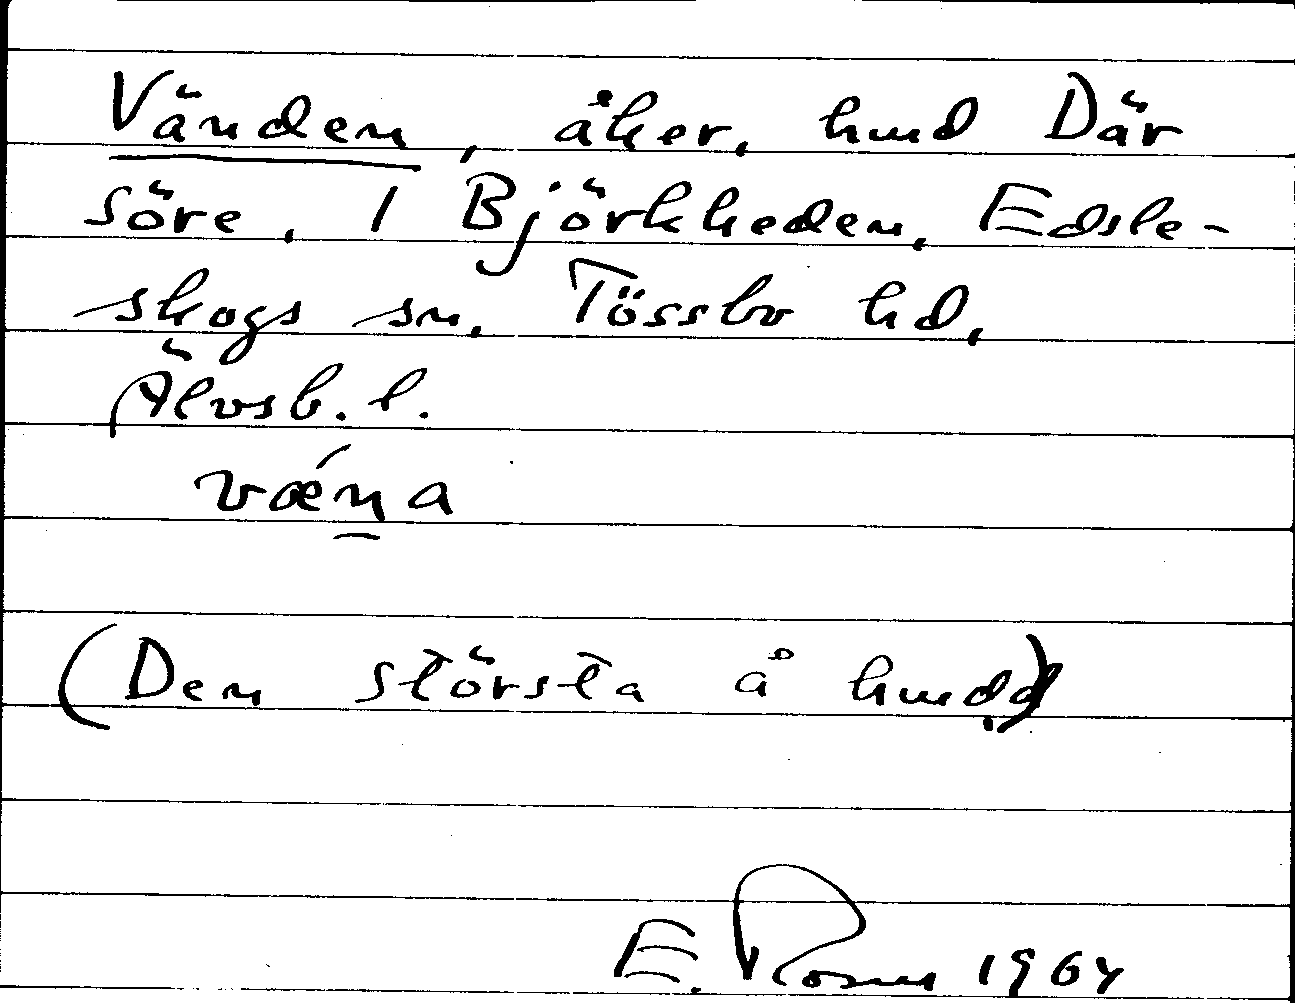 Vänden, åker, hmd Där
söre, 1 Björkheden, Edsle-
skogs sn, Tössbo hd,
Älvsb. l.
vǽn̠a
(Den största å hmdd)
E. Rosus 1964